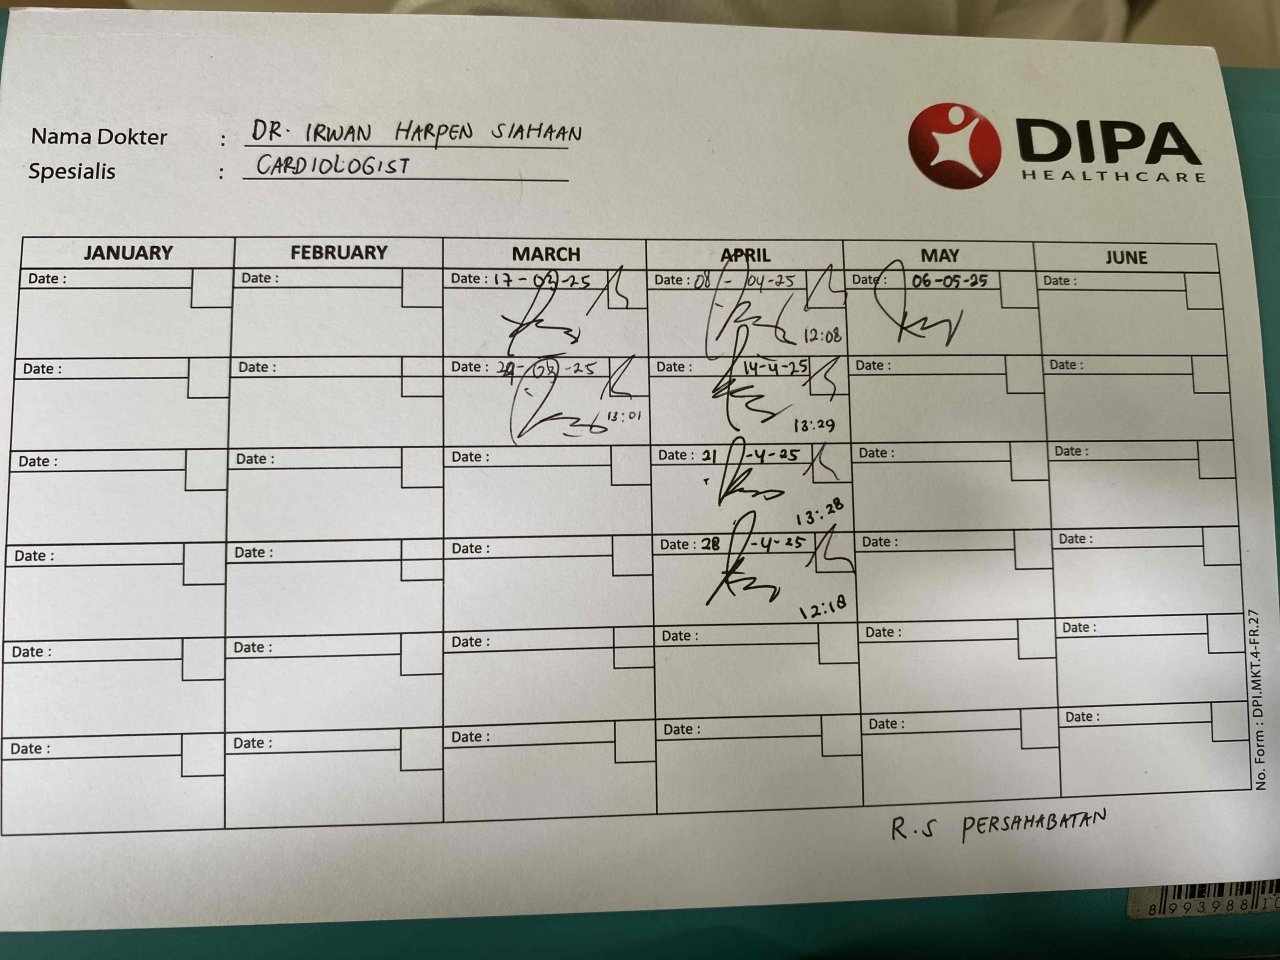 Nama Dokter : DR. IRWAN HARPEN SIAHAAN
Spesialis : CARDIOLOGIST
DIPA
HEALTHCARE
JANUARY FEBRUARY MARCH APRIL MAY JUNE
Date : Date : Date : 17-03-25 Date : 08-04-25 Date : 06-05-25 Date :
12:08
Date : Date : Date : 24-03-25 Date : 14-4-25 Date : Date :
13:01 13:29
Date : Date : Date : Date : 21-4-25 Date : Date :
13:28
Date : Date : Date : Date : 28-4-25 Date : Date :
12:18
Date : Date : Date : Date : Date : Date :
Date : Date : Date : Date : Date : Date :
No. Form : DPI.MKT.4-FR.27
R.S PERSAHABATAN
8 993988 1